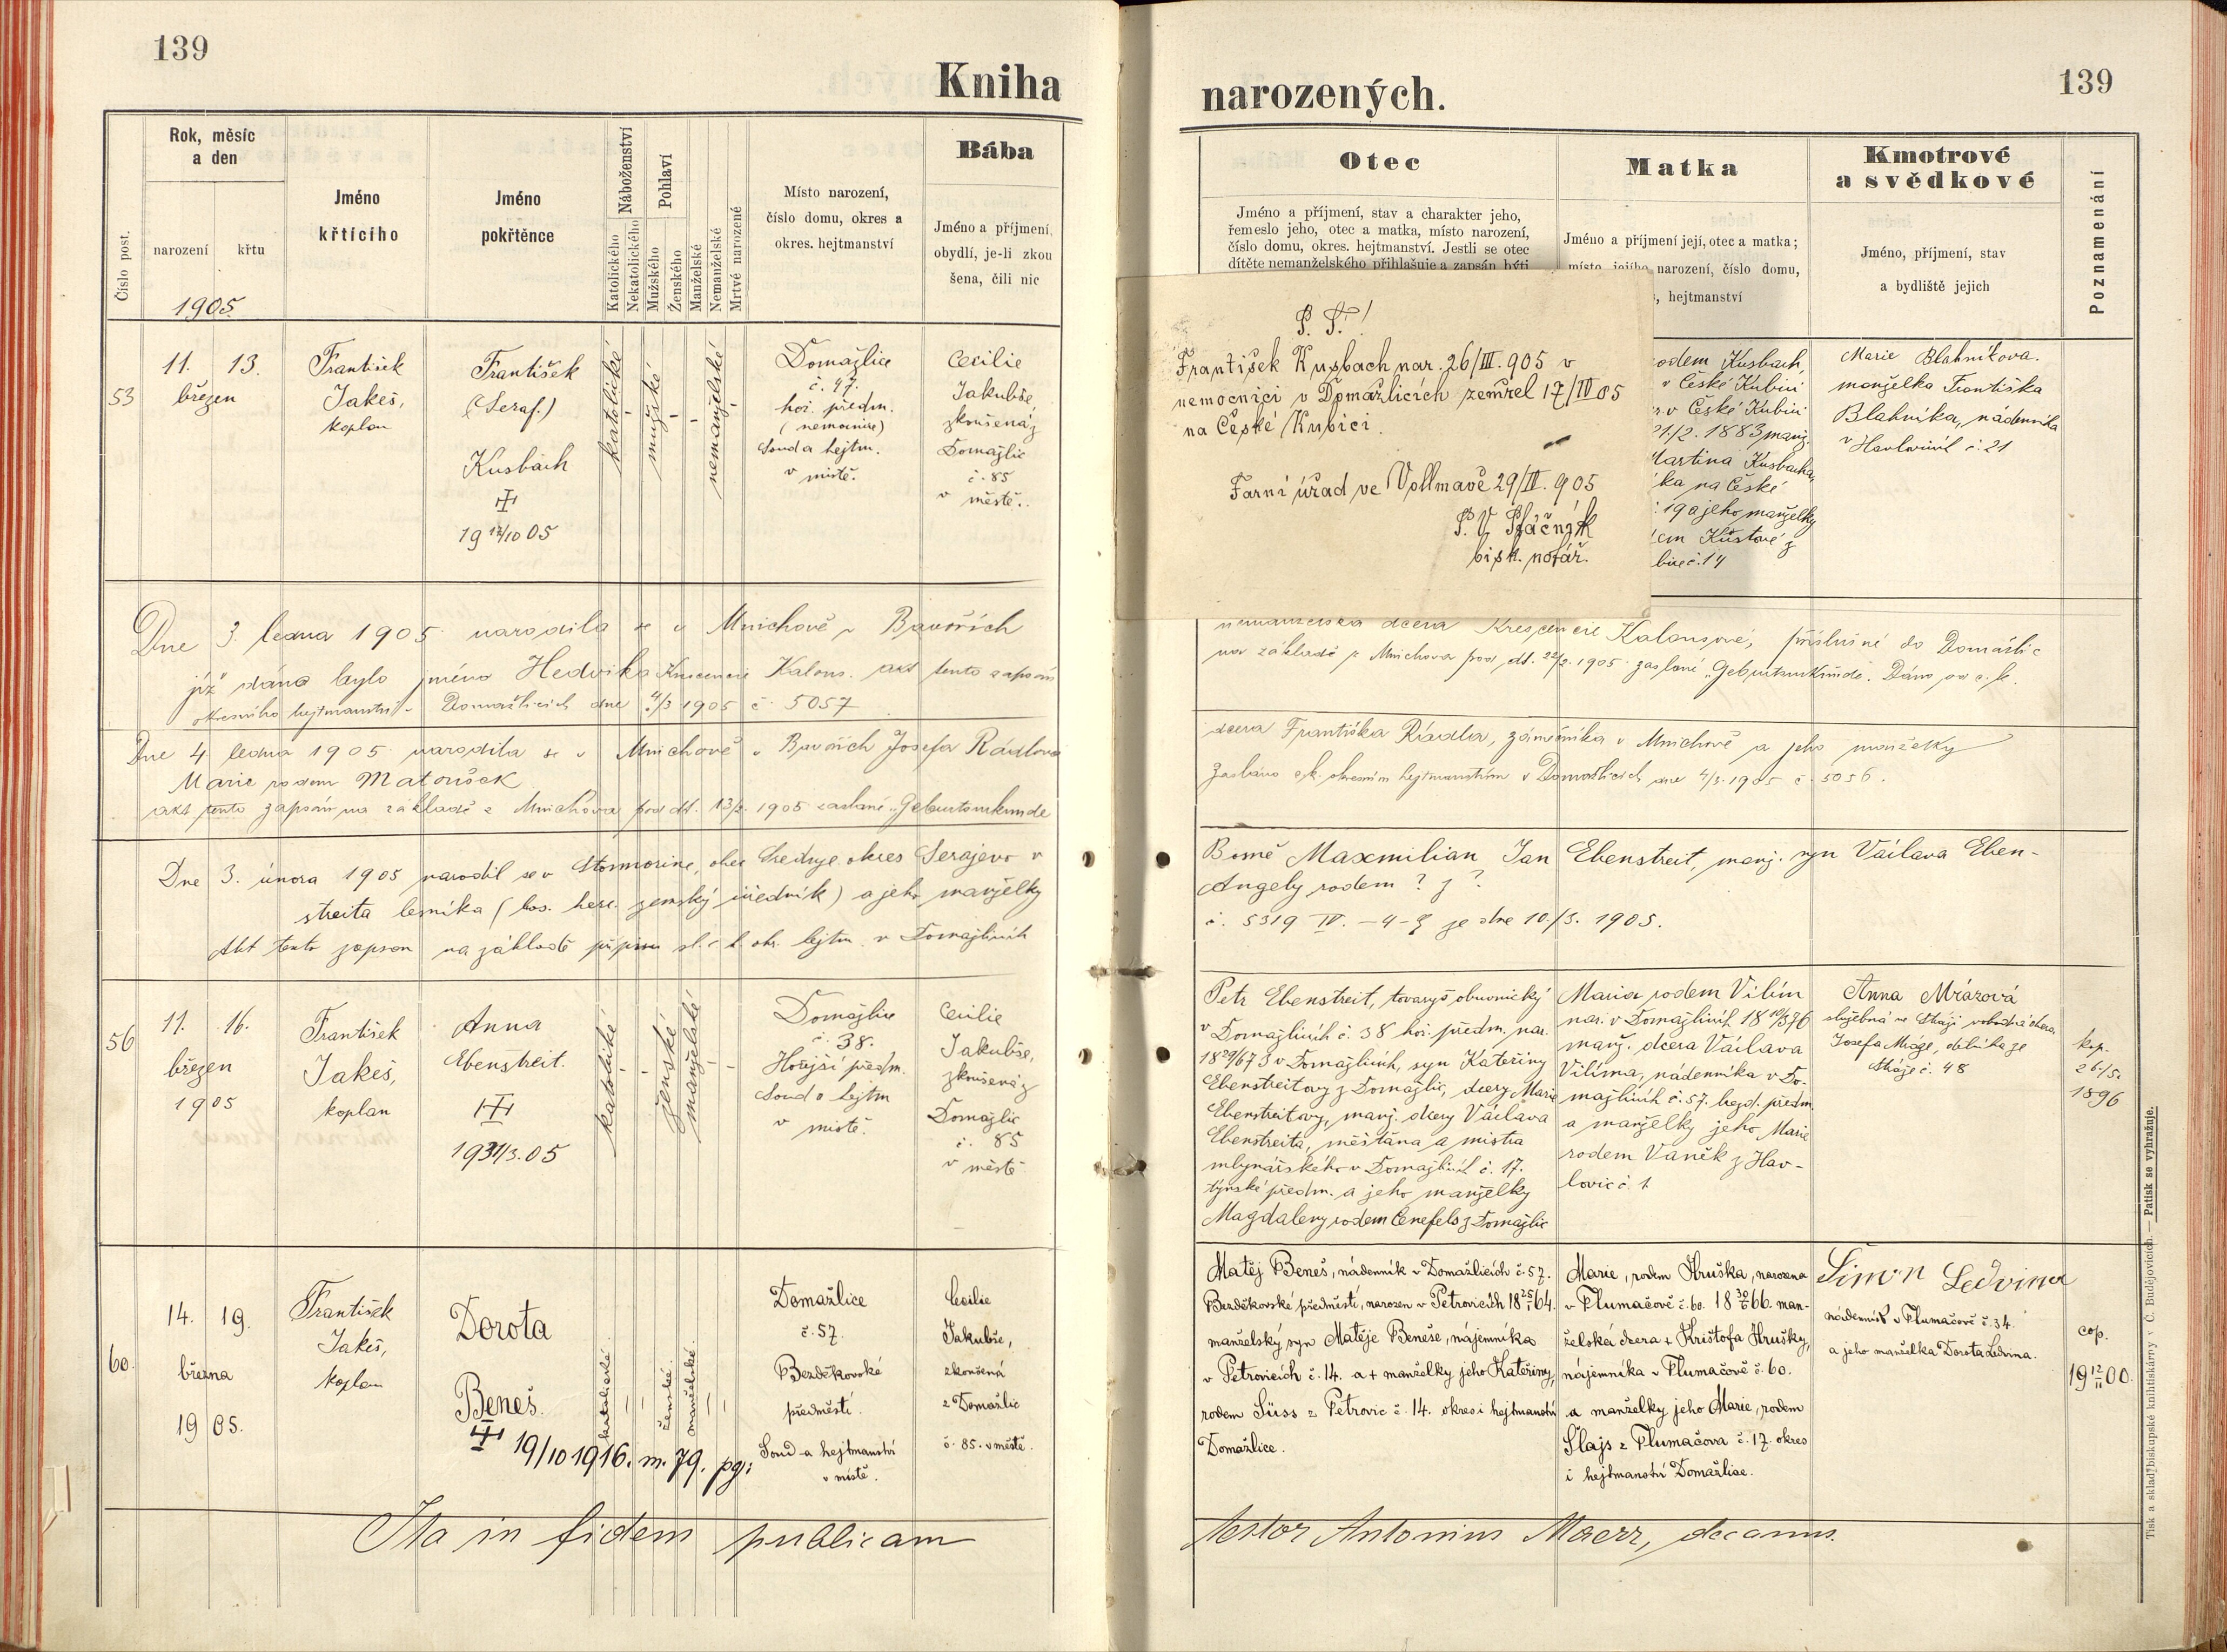 139
Kniha
Rok, měsíc
a den
Číslo post.
narození
křtu
1905
Jméno
křtícího
Jméno
pokřtěnce
Náboženství
Katolického
Nekatolického
Pohlaví
Mužského
Ženského
Manželské
Nemanželské
Mrtvé narozené
Místo narození,
číslo domu, okres a
okres. hejtmanství
Bába
Jméno a příjmení,
obydlí, je-li zkou
šena, čili nic
53
11. 13.
březen
František
Jakeš,
kaplan
František
(Seraf.)
Kusbach
19 17/10 05
katolické
mužské
nemanželské
Domažlice
č. 47.
hoř. předm.
(nemocnice)
Soud a hejtm.
v místě.
Cecilie
Jakubše
zkoušená z
Domažlic
č. 85
v městě.
Dne 3. ledna 1905 narodila se v Mnichově v Bavořích
jíž dáno bylo jméno Hedvika Kalous. akt tento zapsán
okresního hejtmanství v Domažlicích dne 4/3 1905 č. 5057
Dne 4 ledna 1905 narodila se v Mnichově v Bavořích Josefa Rádlova
Marie rodem Matoušek
akt tento zapsán na základě z Mnichova pod dt. 13/2. 1905 zaslané „Geburtsurkunde
Dne 3. února 1905 narodil se v obec okres Serajevo v
streita lesníka (bos. herc. zemský úředník) a jeho manželky
Akt tento zapsán na základě přípisu sl. c. k. okr. hejtm. v Domažlicích
56
11. 16.
březen
1905
František
Jakeš,
kaplan
Anna
Ebenstreit.
1931/3.05
katolické
ženské
manželské
Domažlice
č. 38.
Hořejší předm.
Soud a hejtm
v místě.
Cecilie
Jakubše,
zkoušená z
Domažlic
č. 85
v městě
60.
14. 19.
března
1905.
František
Jakeš,
kaplan
Dorota
Beneš.
19/10 1916. m. 79. pg:
katolické
ženské
manželské
Domažlice
č. 57.
Bezděkovské
předměstí.
Soud a hejtmanství
v místě.
Cecilie
Jakubše,
zkoušená
z Domažlic
č. 85. v městě.
Ita in fidem publicam
139
narozených.
Otec
Jméno a příjmení, stav a charakter jeho,
řemeslo jeho, otec a matka, místo narození,
číslo domu, okres. hejtmanství. Jestli se otec
dítěte nemanželského přihlašuje a zapsán býti
Matka
Jméno a příjmení její, otec a matka;
místo jejího narození, číslo domu,
hejtmanství
Kmotrové
a svědkové
Jméno, příjmení, stav
a bydliště jejich
Poznamenání
P. T.!
František Kusbach nar. 26/III. 905 v
nemocnici v Domažlicích zemřel 17/IV 05
na České Kubici.
Farní úřad ve Vollmavě 29/IV. 905
P. V. Ptáčník
bisk. notář.
odem Kusbach,
v České Kubici
v České Kubici
21./2. 1883 manž.
Martina Kusbacha,
ka na České
19 a jeho manželky
em Küstové z
bice č. 14
Marie Blahníkova.
manželka Františka
Blahníka, nádenníka
v Havlovicích č. 21
nemanželská dcera Krescencie Kalousové, příslušné do Domažlic
na základě z Mnichova pod dt. 22/2. 1905 zaslané „Geburtsurkunde. Dáno od c. k.
dcera Františka Rádla, zámečníka v Mnichově a jeho manželky
Zasláno c. k. okresním hejtmanstvím v Domažlicích dne 4/3. 1905 č. 5056.
Bosně Maxmilian Jan Ebenstreit, manž. syn Václava Eben-
Angely rodem ? z ?
č. 5319 IV. – 4 – ze dne 10./3. 1905.
Petr Ebenstreit, tovaryš obuvnický
v Domažlicích č. 38 hoř. předm. nar.
1829/673 v Domažlicích, syn Kateřiny
Ebenstreitovy z Domažlic, dcery Marie
Ebenstreitovy, manž. dcery Václava
Ebenstreita, měšťana a mistra
mlynářského v Domažlicích č. 17.
týnské předm. a jeho manželky
Magdaleny rodem Cenefels z Domažlic
Maria rodem Vilím
nar. v Domažlicích 18 10/3 76
manž. dcera Václava
Vilíma, nádenníka v Do-
mažlicích č. 57. bezd. předm.
a manželky jeho Marie
rodem Vaněk z Hav-
lovic č. 1
Anna Mrázová
služebná ve Stráži svobodná dcera
Josefa Mráze, dělníka ze
Stráže č. 48
kop.
26./5.
1896
Matěj Beneš, nádenník v Domažlicích č. 57.
Bezděkovské předměstí, narozen v Petrovicích 18 25/1 64.
manželský syn Matěje Beneše, nájemníka
v Petrovicích č. 14. a + manželky jeho Kateřiny,
rodem Süss z Petrovic č. 14. okres i hejtmanství
Domažlice.
Marie, rodem Hruška, narozena
v Tlumačově č. 60. 18 30/6 66. man-
želská dcera + Krištofa Hrušky,
nájemníka v Tlumačově č. 60.
a manželky jeho Marie, rodem
Šlajs z Tlumačova č. 17. okres
i hejtmanství Domažlice.
Šimon Ledvina
nádenník v Tlumačově č. 34.
a jeho manželka Dorota Ledvina.
cop.
19 12/II 00.
testor Antonius Maerz, decanus.
Tisk a sklad biskupské knihtiskárny v Č. Budějovicích. — Patisk se vyhražuje.